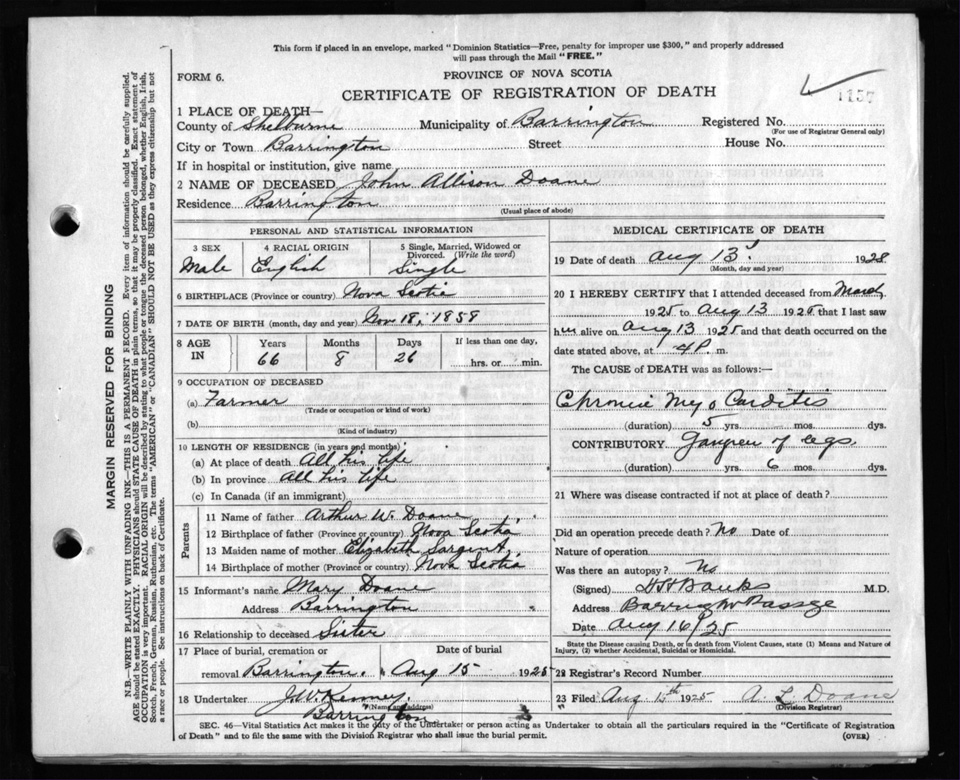 This form if placed in an envelope, marked "Dominion Statistics—Free, penalty for improper use $300," and properly addressed
will pass through the Mail "FREE."
FORM 6.
PROVINCE OF NOVA SCOTIA
CERTIFICATE OF REGISTRATION OF DEATH
1157
1 PLACE OF DEATH—
County of Shelburne Municipality of Barrington Registered No.
(For use of Registrar General only)
City or Town Barrington Street House No.
If in hospital or institution, give name
2 NAME OF DECEASED John Allison Doane
Residence Barrington
(Usual place of abode)
PERSONAL AND STATISTICAL INFORMATION
3 SEX 4 RACIAL ORIGIN 5 Single, Married, Widowed or
Divorced. (Write the word)
Male English Single
6 BIRTHPLACE (Province or country) Nova Scotia
7 DATE OF BIRTH (month, day and year) Nov 18, 1858
8 AGE IN Years Months Days If less than one day,
66 8 26 hrs. or min.
9 OCCUPATION OF DECEASED
(a) Farmer
(Trade or occupation or kind of work)
(b)
(Kind of industry)
10 LENGTH OF RESIDENCE (in years and months)
(a) At place of death All his life
(b) In province All his life
(c) In Canada (if an immigrant)
Parents
11 Name of father Arthur W. Doane
12 Birthplace of father (Province or country) Nova Scotia
13 Maiden name of mother Elizabeth Sargent
14 Birthplace of mother (Province or country) Nova Scotia
15 Informant's name Mary Doane
Address Barrington
16 Relationship to deceased Sister
17 Place of burial, cremation or Date of burial
removal Barrington. Aug 15 1925
18 Undertaker J.W. Kenney.
(Name and address)
Barrington
MEDICAL CERTIFICATE OF DEATH
19 Date of death Aug 13 1925
(Month, day and year)
20 I HEREBY CERTIFY that I attended deceased from March
1925 to Aug 13 1925 that I last saw
him alive on Aug 13 1925 and that death occurred on the
date stated above, at 4 P. m.
The CAUSE of DEATH was as follows:—
Chronic Myo Carditis
(duration) 5 yrs. mos. dys.
CONTRIBUTORY Gangren of legs
(duration) yrs. 6 mos. dys.
21 Where was disease contracted if not at place of death?
Did an operation precede death? No Date of
Nature of operation
Was there an autopsy? No
(Signed) Banks M.D.
Address Barrington Passage
Date Aug 16/25
State the Disease causing Death, or in death from Violent Causes, state (1) Means and Nature of
Injury, (2) whether Accidental, Suicidal or Homicidal.
22 Registrar's Record Number
23 Filed Aug 15th 1925 A. L. Doane
(Division Registrar)
SEC. 46—Vital Statistics Act makes it the duty of the Undertaker or person acting as Undertaker to obtain all the particulars required in the "Certificate of Registration
of Death" and to file the same with the Division Registrar who shall issue the burial permit.
(OVER)
MARGIN RESERVED FOR BINDING
N.B.—WRITE PLAINLY WITH UNFADING INK—THIS IS A PERMANENT RECORD. Every item of information should be carefully supplied.
AGE should be stated EXACTLY. PHYSICIANS should STATE CAUSE OF DEATH in plain terms, so that it may be properly classified. Exact statement of
OCCUPATION is very important. RACIAL ORIGIN will be described by stating to what people or tongue the deceased person belonged, whether English, Irish,
Scotch, French, German, Russian, Ruthenian, etc. The terms "AMERICAN" or "CANADIAN" SHOULD NOT BE USED as they express citizenship but not
a race or people. See instructions on back of Certificate.